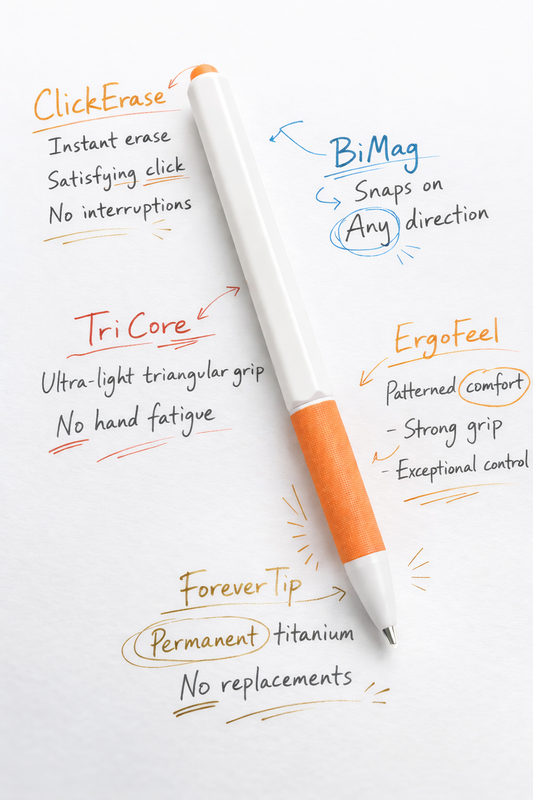 ClickErase
Instant erase
Satisfying click
No interruptions
BiMag
Snaps on
Any direction
TriCore
Ultra-light triangular grip
No hand fatigue
ErgoFeel
Patterned comfort
- Strong grip
- Exceptional control
ForeverTip
Permanent titanium
No replacements